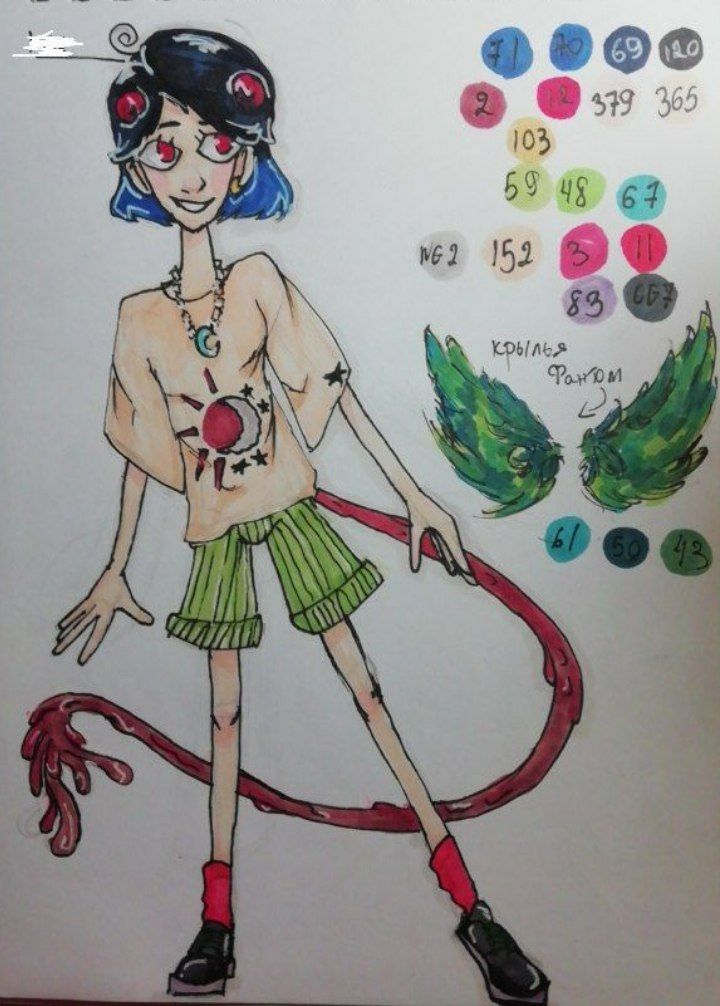 71 70 69 120
2 12 379 365
103
59 48 67
WG2 152 3 11
83 CG7
крылья
Фантом
61 50 43